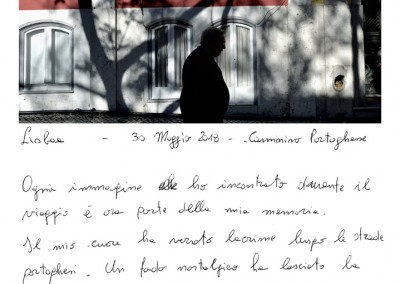 Lisboa - 30 Maggio 2018 - Cammino Portoghese
Ogni immagine che ho incontrato durante il
viaggio è ora parte della mia memoria.
Il mio cuore ha versato lacrime lungo le strade
portoghesi. Un fado nostalgico ha lasciato la